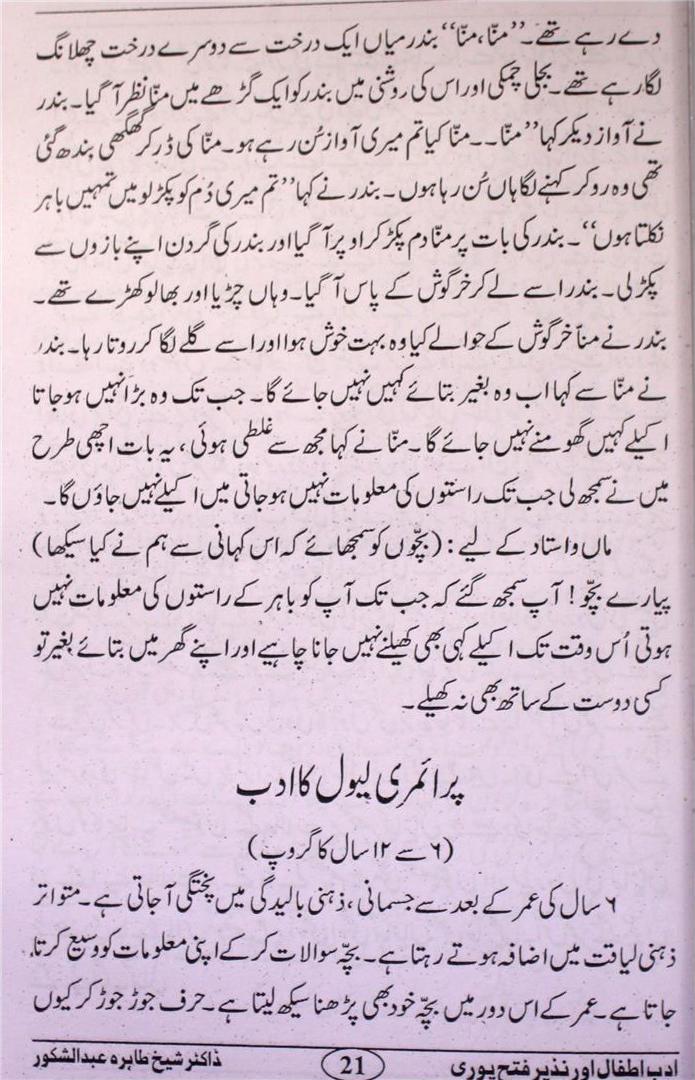 دے رہے تھے۔ ’’منّا، منّا‘‘ بندر میاں ایک درخت سے دوسرے درخت چھلانگ
لگا رہے تھے۔ بجلی چمکی اور اس کی روشنی میں بندر کو ایک گڑھے میں منّا نظر آ گیا۔ بندر
نے آواز دیکر کہا ’’منّا۔۔منّا کیا تم میری آواز سُن رہے ہو۔ منّا کی ڈر کر گھگھی بندھ گئی
تھی وہ رو کر کہنے لگا ہاں سُن رہا ہوں۔ بندر نے کہا ’’تم میری دُم کو پکڑ لو میں تمہیں باہر
نکلتا ہوں‘‘۔ بندر کی بات پر منّا دم پکڑ کر اوپر آ گیا اور بندر کی گردن اپنے بازوں سے
پکڑ لی۔ بندر اسے لے کر خرگوش کے پاس آ گیا۔ وہاں چڑیا اور بھالو کھڑے تھے۔
بندر نے مناّ خرگوش کے حوالے کیا وہ بہت خوش ہوا اور اسے گلے لگا کر روتا رہا۔ بندر
نے منّا سے کہا اب وہ بغیر بتائے کہیں نہیں جائے گا۔ جب تک وہ بڑا نہیں ہو جاتا
اکیلے کہیں گھومنے نہیں جائے گا۔ منّا نے کہا مجھ سے غلطی ہوئی، یہ بات اچھی طرح
میں نے سمجھ لی جب تک راستوں کی معلومات نہیں ہو جاتی میں اکیلے نہیں جاؤں گا۔
ماں و استاد کے لیے: (بچّوں کو سمجھائے کہ اس کہانی سے ہم نے کیا سیکھا)
پیارے بچّو! آپ سمجھ گئے کہ جب تک آپ کو باہر کے راستوں کی معلومات نہیں
ہوتی اُس وقت تک اکیلے کہی بھی کھیلنے نہیں جانا چاہیے اور اپنے گھر میں بتائے بغیر تو
کسی دوست کے ساتھ بھی نہ کھیلے۔
پرائمری لیول کا ادب
(۶ سے ۱۲ سال کا گروپ)
۶ سال کی عمر کے بعد سے جسمانی، ذہنی بالیدگی میں پختگی آ جاتی ہے۔ متواتر
ذہنی لیاقت میں اضافہ ہوتے رہتا ہے۔ بچّہ سوالات کر کے اپنی معلومات کو وسیع کرتا
جاتا ہے۔ عمر کے اس دور میں بچّہ خود بھی پڑھنا سیکھ لیتا ہے۔ حرف جوڑ جوڑ کر کیوں
ادب اطفال اور نذیر فتح پوری 21 ڈاکٹر شیخ طاہرہ عبدالشکور